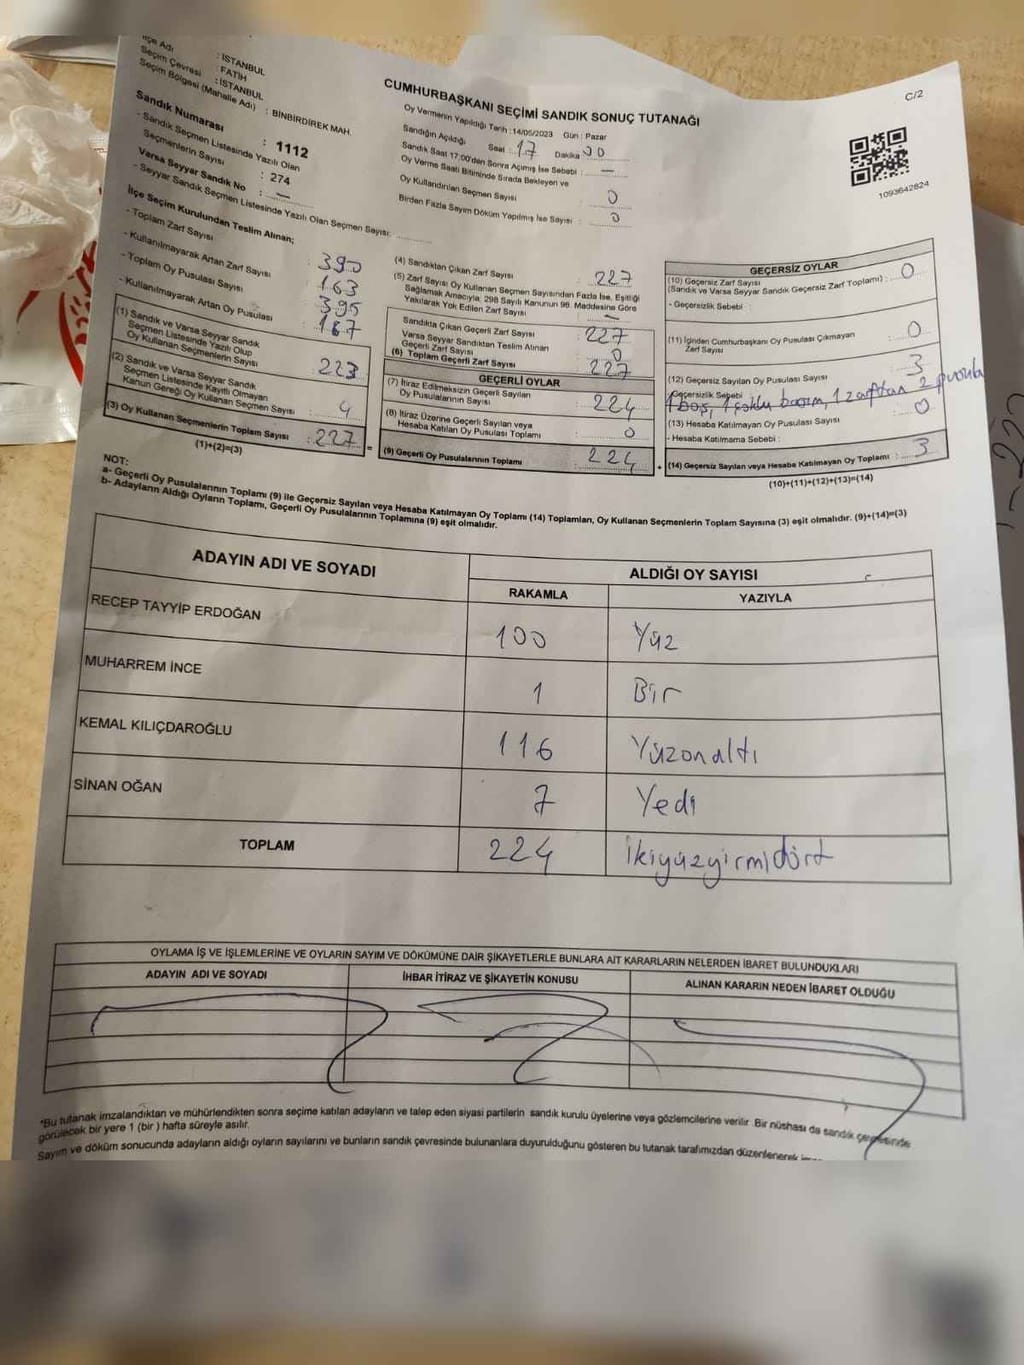 İlçe Adı : İSTANBUL
Seçim Çevresi : FATİH
Seçim Bölgesi (Mahalle Adı) : İSTANBUL
: BİNBİRDİREK MAH.
Sandık Numarası : 1112
- Sandık Seçmen Listesinde Yazılı Olan
Seçmenlerin Sayısı : 274
Varsa Seyyar Sandık No : —
- Seyyar Sandık Seçmen Listesinde Yazılı Olan Seçmen Sayısı:
CUMHURBAŞKANI SEÇİMİ SANDIK SONUÇ TUTANAĞI
C/2
Oy Vermenin Yapıldığı Tarih :14/05/2023 Gün : Pazar
Sandığın Açıldığı Saat : 17 Dakika 00
Sandık Saat 17:00'den Sonra Açımış İse Sebebi : —
Oy Verme Saati Bitiminde Sırada Bekleyen ve
Oy Kullandırılan Seçmen Sayısı : 0
Birden Fazla Sayım Döküm Yapılmış İse Sayısı : 0
1093642824
İlçe Seçim Kurulundan Teslim Alınan;
- Toplam Zarf Sayısı : 390
- Kullanılmayarak Artan Zarf Sayısı : 163
- Toplam Oy Pusulası Sayısı : 395
- Kullanılmayarak Artan Oy Pusulası : 167
(1) Sandık ve Varsa Seyyar Sandık
Seçmen Listesinde Yazılı Olup
Oy Kullanan Seçmenlerin Sayısı : 223
(2) Sandık ve Varsa Seyyar Sandık
Seçmen Listesinde Kayıtlı Olmayan
Kanun Gereği Oy Kullanan Seçmen Sayısı : 4
(3) Oy Kullanan Seçmenlerin Toplam Sayısı : 227 =
(1)+(2)=(3)
(4) Sandıktan Çıkan Zarf Sayısı : 227
(5) Zarf Sayısı Oy Kullanan Seçmen Sayısından Fazla İse, Eşitliği
Sağlamak Amacıyla; 298 Sayılı Kanunun 98. Maddesine Göre
Yakılarak Yok Edilen Zarf Sayısı : —
Sandıkta Çıkan Geçerli Zarf Sayısı : 227
Varsa Seyyar Sandıktan Teslim Alınan
Geçerli Zarf Sayısı : 0
(6) Toplam Geçerli Zarf Sayısı : 227
GEÇERLİ OYLAR
(7) İtiraz Edilmeksizin Geçerli Sayılan
Oy Pusulalarının Sayısı : 224
(8) İtiraz Üzerine Geçerli Sayılan veya
Hesaba Katılan Oy Pusulası Toplamı : 0
(9) Geçerli Oy Pusulalarının Toplamı : 224 +
GEÇERSİZ OYLAR
(10) Geçersiz Zarf Sayısı
(Sandık ve Varsa Seyyar Sandık Geçersiz Zarf Toplamı) : 0
- Geçersizlik Sebebi :
(11) İçinden Cumhurbaşkanı Oy Pusulası Çıkmayan
Zarf Sayısı : 0
(12) Geçersiz Sayılan Oy Pusulası Sayısı : 3
- Geçersizlik Sebebi
1 boş, 1 çoklu basım, 1 zarftan 2 pusula
(13) Hesaba Katılmayan Oy Pusulası Sayısı : 0
- Hesaba Katılmama Sebebi :
(14) Geçersiz Sayılan veya Hesaba Katılmayan Oy Toplamı : 3
(10)+(11)+(12)+(13)=(14)
NOT:
a- Geçerli Oy Pusulalarının Toplamı (9) ile Geçersiz Sayılan veya Hesaba Katılmayan Oy Toplamı (14) Toplamları, Oy Kullanan Seçmenlerin Toplam Sayısına (3) eşit olmalıdır. (9)+(14)=(3)
b- Adayların Aldığı Oyların Toplamı, Geçerli Oy Pusulalarının Toplamına (9) eşit olmalıdır.
ADAYIN ADI VE SOYADI
ALDIĞI OY SAYISI
RAKAMLA YAZIYLA
RECEP TAYYİP ERDOĞAN 100 Yüz
MUHARREM İNCE 1 Bir
KEMAL KILIÇDAROĞLU 116 Yüzonaltı
SİNAN OĞAN 7 Yedi
TOPLAM 224 İkiyüzyirmidört
OYLAMA İŞ VE İŞLEMLERİNE VE OYLARIN SAYIM VE DÖKÜMÜNE DAİR ŞİKAYETLERLE BUNLARA AİT KARARLARIN NELERDEN İBARET BULUNDUKLARI
ADAYIN ADI VE SOYADI İHBAR İTİRAZ VE ŞİKAYETİN KONUSU ALINAN KARARIN NEDEN İBARET OLDUĞU
*Bu tutanak imzalandıktan ve mühürlendikten sonra seçime katılan adayların ve talep eden siyasi partilerin sandık kurulu üyelerine veya gözlemcilerine verilir. Bir nüshası da sandık çevresinde
görülecek bir yere 1 (bir ) hafta süreyle asılır.
Sayım ve döküm sonucunda adayların aldığı oyların sayılarını ve bunların sandık çevresinde bulunanlara duyurulduğunu gösteren bu tutanak tarafımızdan düzenlenerek